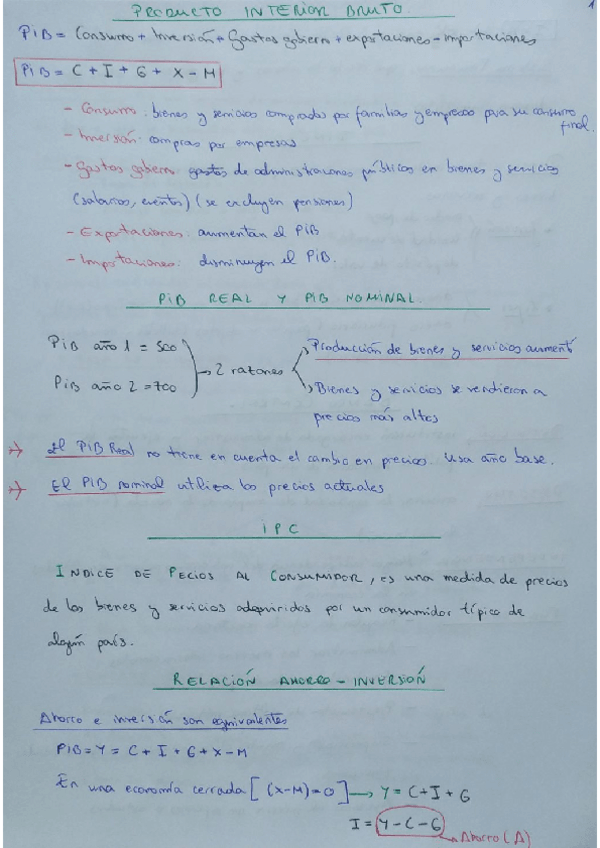 1
PRODUCTO INTERIOR BRUTO.
PiB = Consumo + Inversión + Gastos gobierno + exportaciones - importaciones
PiB = C + I + G + X - M
- Consumo: bienes y servicios comprados por familias y empresas para su consumo
final.
- Inversión: compras por empresas
- Gastos gobierno: gastos de administraciones públicas en bienes y servicios
(salarios, eventos) (se excluyen pensiones)
- Exportaciones: aumentan el PiB
- Importaciones: disminuyen el PiB.
PiB REAL Y PIB NOMINAL.
PiB año 1 = 500
PiB año 2 = 700
→ 2 razones
Producción de bienes y servicios aumentó
Bienes y servicios se vendieron a
precios más altos
→ El PIB Real no tiene en cuenta el cambio en precios. Usa año base.
→ El PIB nominal utiliza los precios actuales
IPC
INDICE DE PECIOS AL CONSUMIDOR, es una medida de precios
de los bienes y servicios adquiridos por un consumidor típico de
algún país.
RELACIÓN AHORRO - INVERSIÓN
Ahorro e inversión son equivalentes
PIB = Y = C + I + G + X - M
En una economía cerrada [(X-M)=0] → Y = C + I + G
I = Y - C - G
→ Ahorro (A)